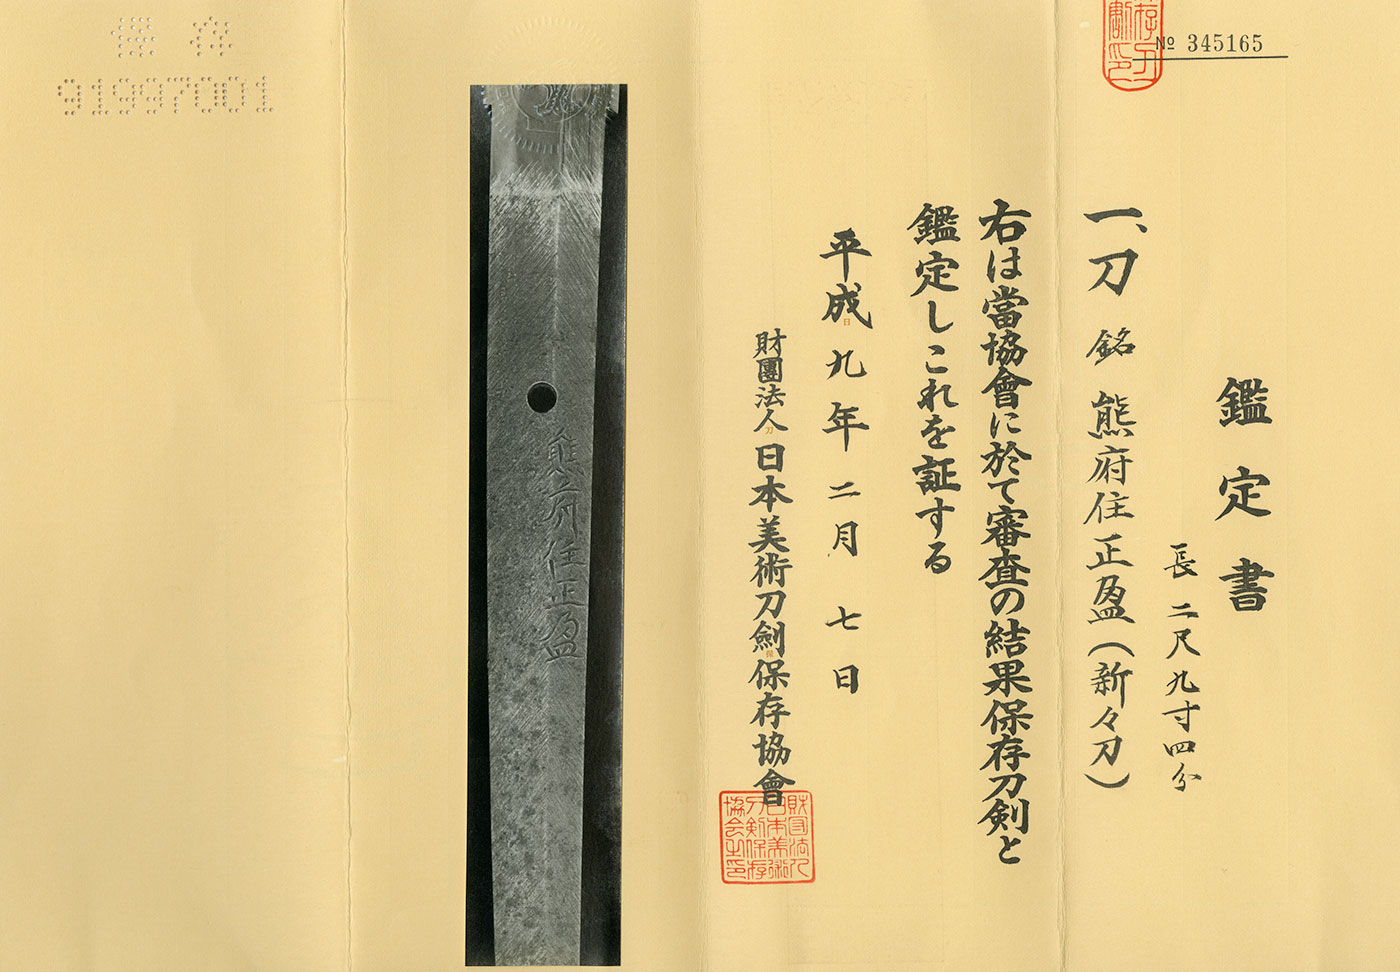 № 345165
鑑定書
長二尺九寸四分
一、刀 銘 熊府住正盈（新々刀）
右は當協會に於て審査の結果保存刀剣と
鑑定しこれを証する
平成九年二月七日
財團法人日本美術刀劍保存協會
財団法人
日本美術
刀剣保存
協会之印
熊府住正盈
保存
91997001